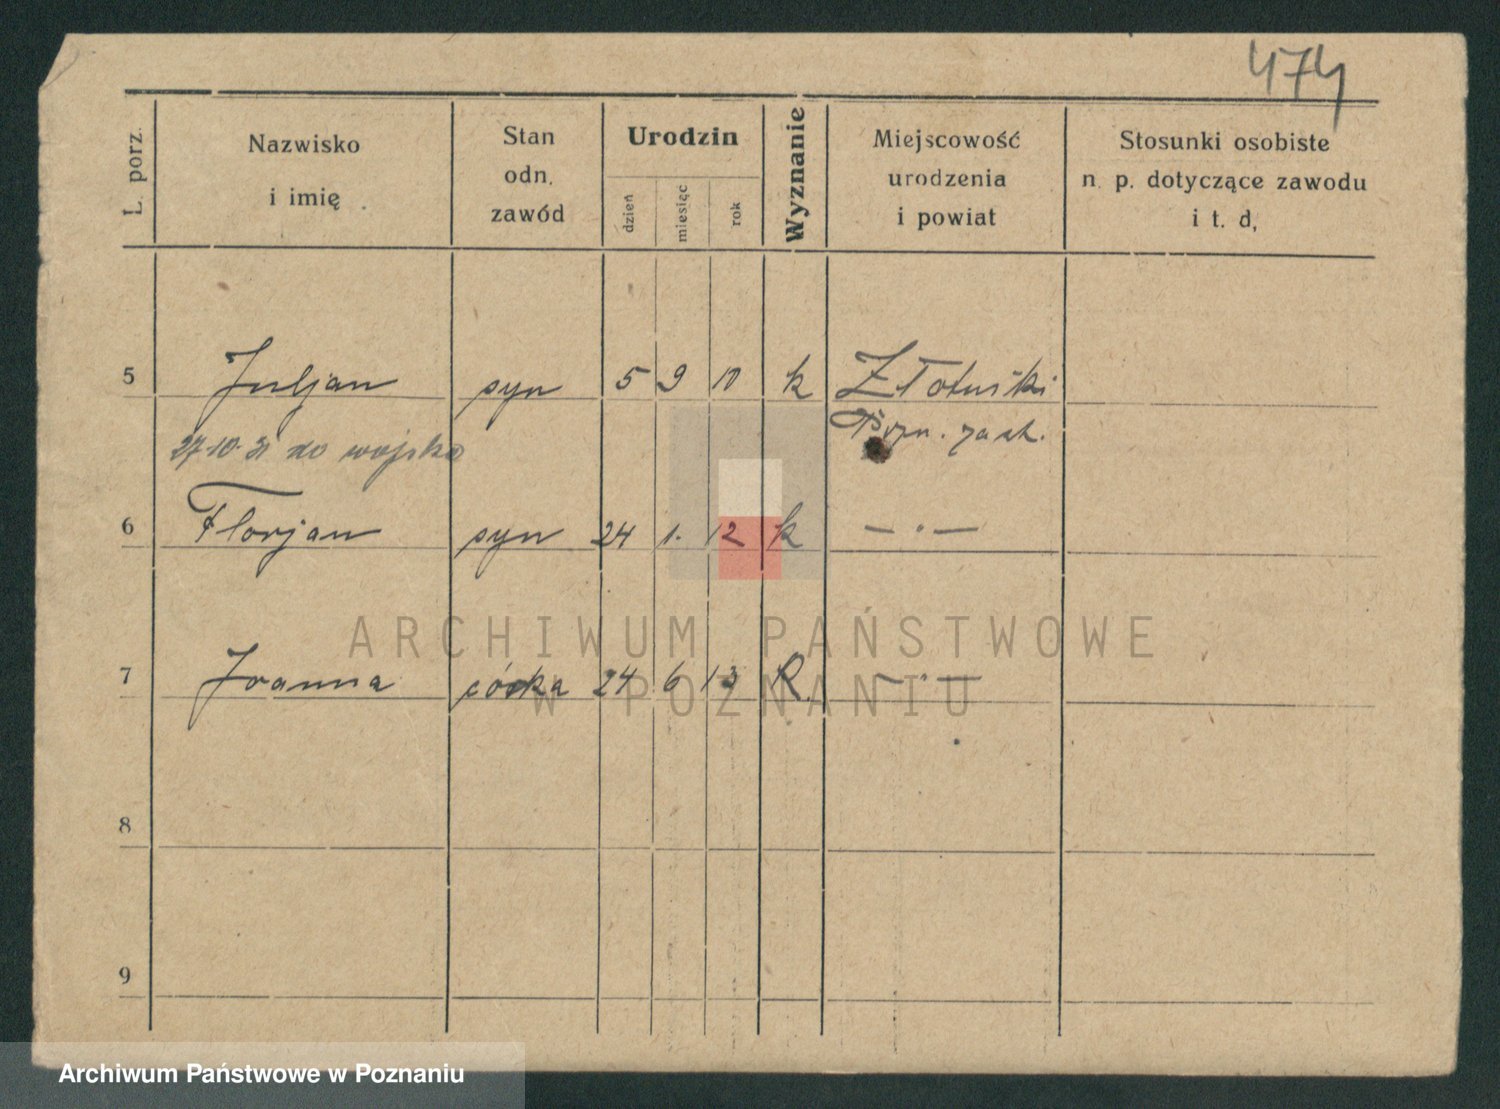 474
L. porz.
Nazwisko
i imię
Stan
odn.
zawód
Urodzin
dzień
miesiąc
rok
Wyznanie
Miejscowość
urodzenia
i powiat
Stosunki osobiste
n. p. dotyczące zawodu
i t. d,
5 Juljan syn 5 9 10 k Złotniki
Pozn. zach.
27.10.31 do wojska
6 Florjan syn 24 1. 12 k — " —
7 Joanna córka 24 6 13 R. — " —
8
9
ARCHIWUM PAŃSTWOWE
W POZNANIU
Archiwum Państwowe w Poznaniu